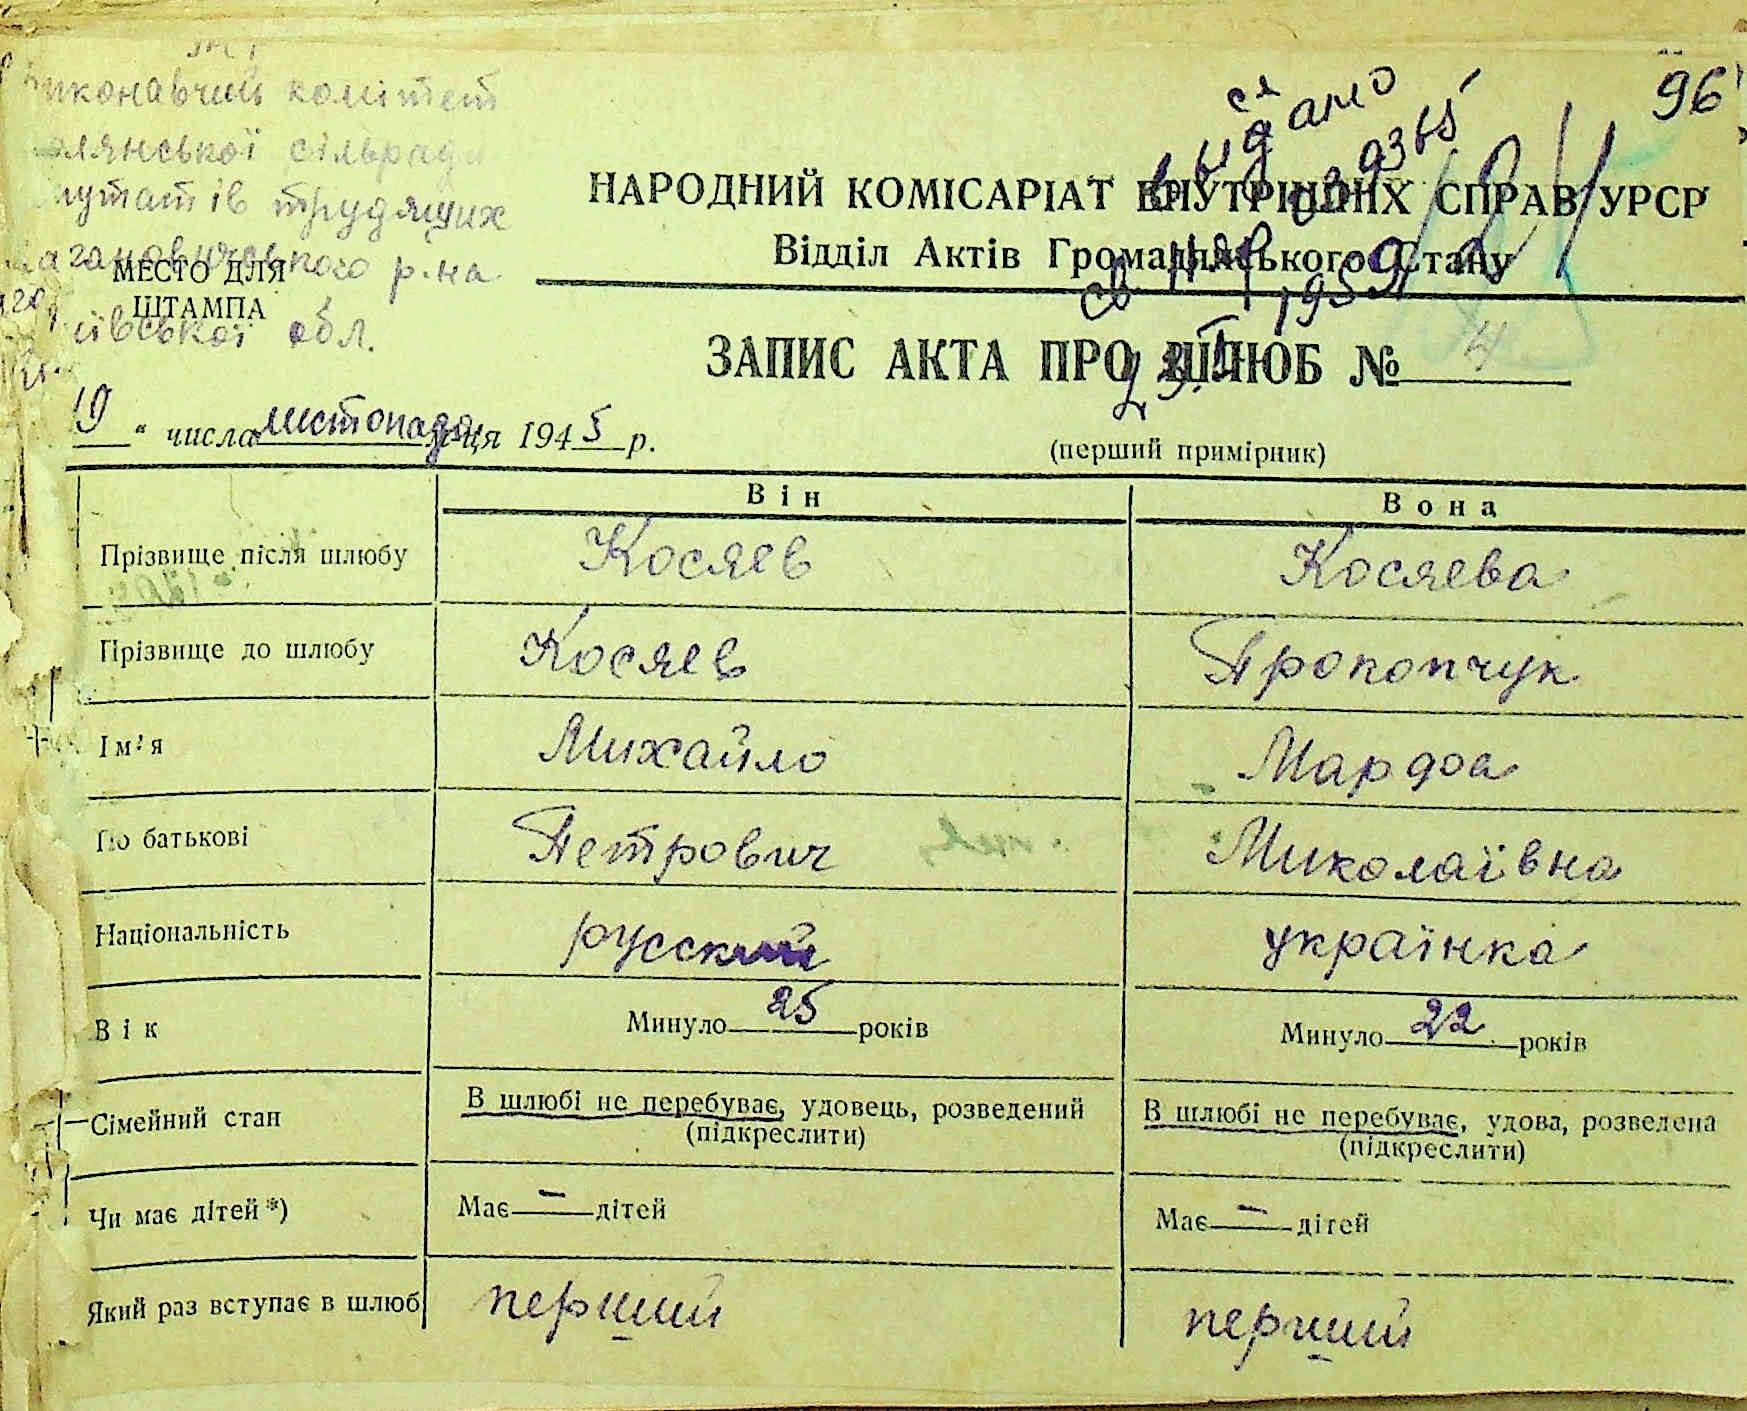 96
виконавчий комітет
сільради
депутатів трудящих
Кагановичського р-на
Київської обл.
МЕСТО ДЛЯ
ШТАМПА
НАРОДНИЙ КОМІСАРІАТ ВНУТРІШНІХ СПРАВ УРСР
Відділ Актів Громадянського Стану
видано
1959
ЗАПИС АКТА ПРО ШЛЮБ № 4
19 " числа листопада м-ця 1945 р.
(перший примірник)
Він Вона
Прізвище після шлюбу Косяев Косяева
Прізвище до шлюбу Косяев Прокопчук
Ім'я Михайло Мардоа
По батькові Петрович Миколаївна
Національність русский українка
Вік Минуло 25 років Минуло 22 років
Сімейний стан В шлюбі не перебуває, удовець, розведений В шлюбі не перебуває, удова, розведена
(підкреслити) (підкреслити)
Чи має дітей *) Має — дітей Має — дітей
Який раз вступає в шлюб перший перший